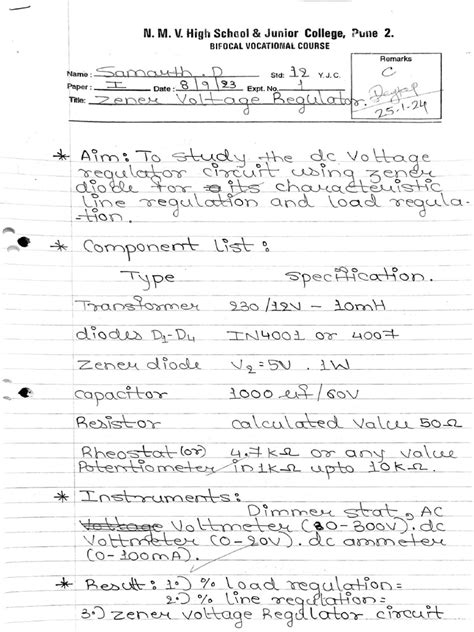 N. M. V. High School & Junior College, Pune 2.
BIFOCAL VOCATIONAL COURSE
Name: Samarth .D Std: 12 Y.J.C.
Paper: I Date: 8/9/23 Expt. No. 1
Title: Zener Voltage Regulator.
Remarks
C
25-1-24
* Aim: To study the dc voltage
regulator circuit using zener
diode for its characteristic
line regulation and load regula-
-tion.
* Component list :
Type Specification.
Transformer 230/12V - 10mH
diodes D1-D4 IN4001 or 4007
Zener diode Vz=5V . 1W
capacitor 1000 uf/60V
Resistor calculated value 50Ω
Rheostat (or) 4.7kΩ or any value
Potentiometer in 1kΩ upto 10kΩ.
* Instruments:
Dimmer stat, AC
Voltmeter (0-300V). dc
Voltmeter (0-20V). dc ammeter
(0-100mA).
* Result : 1.) % load regulation=
2.) % line regulation=
3.) zener voltage Regulator circuit